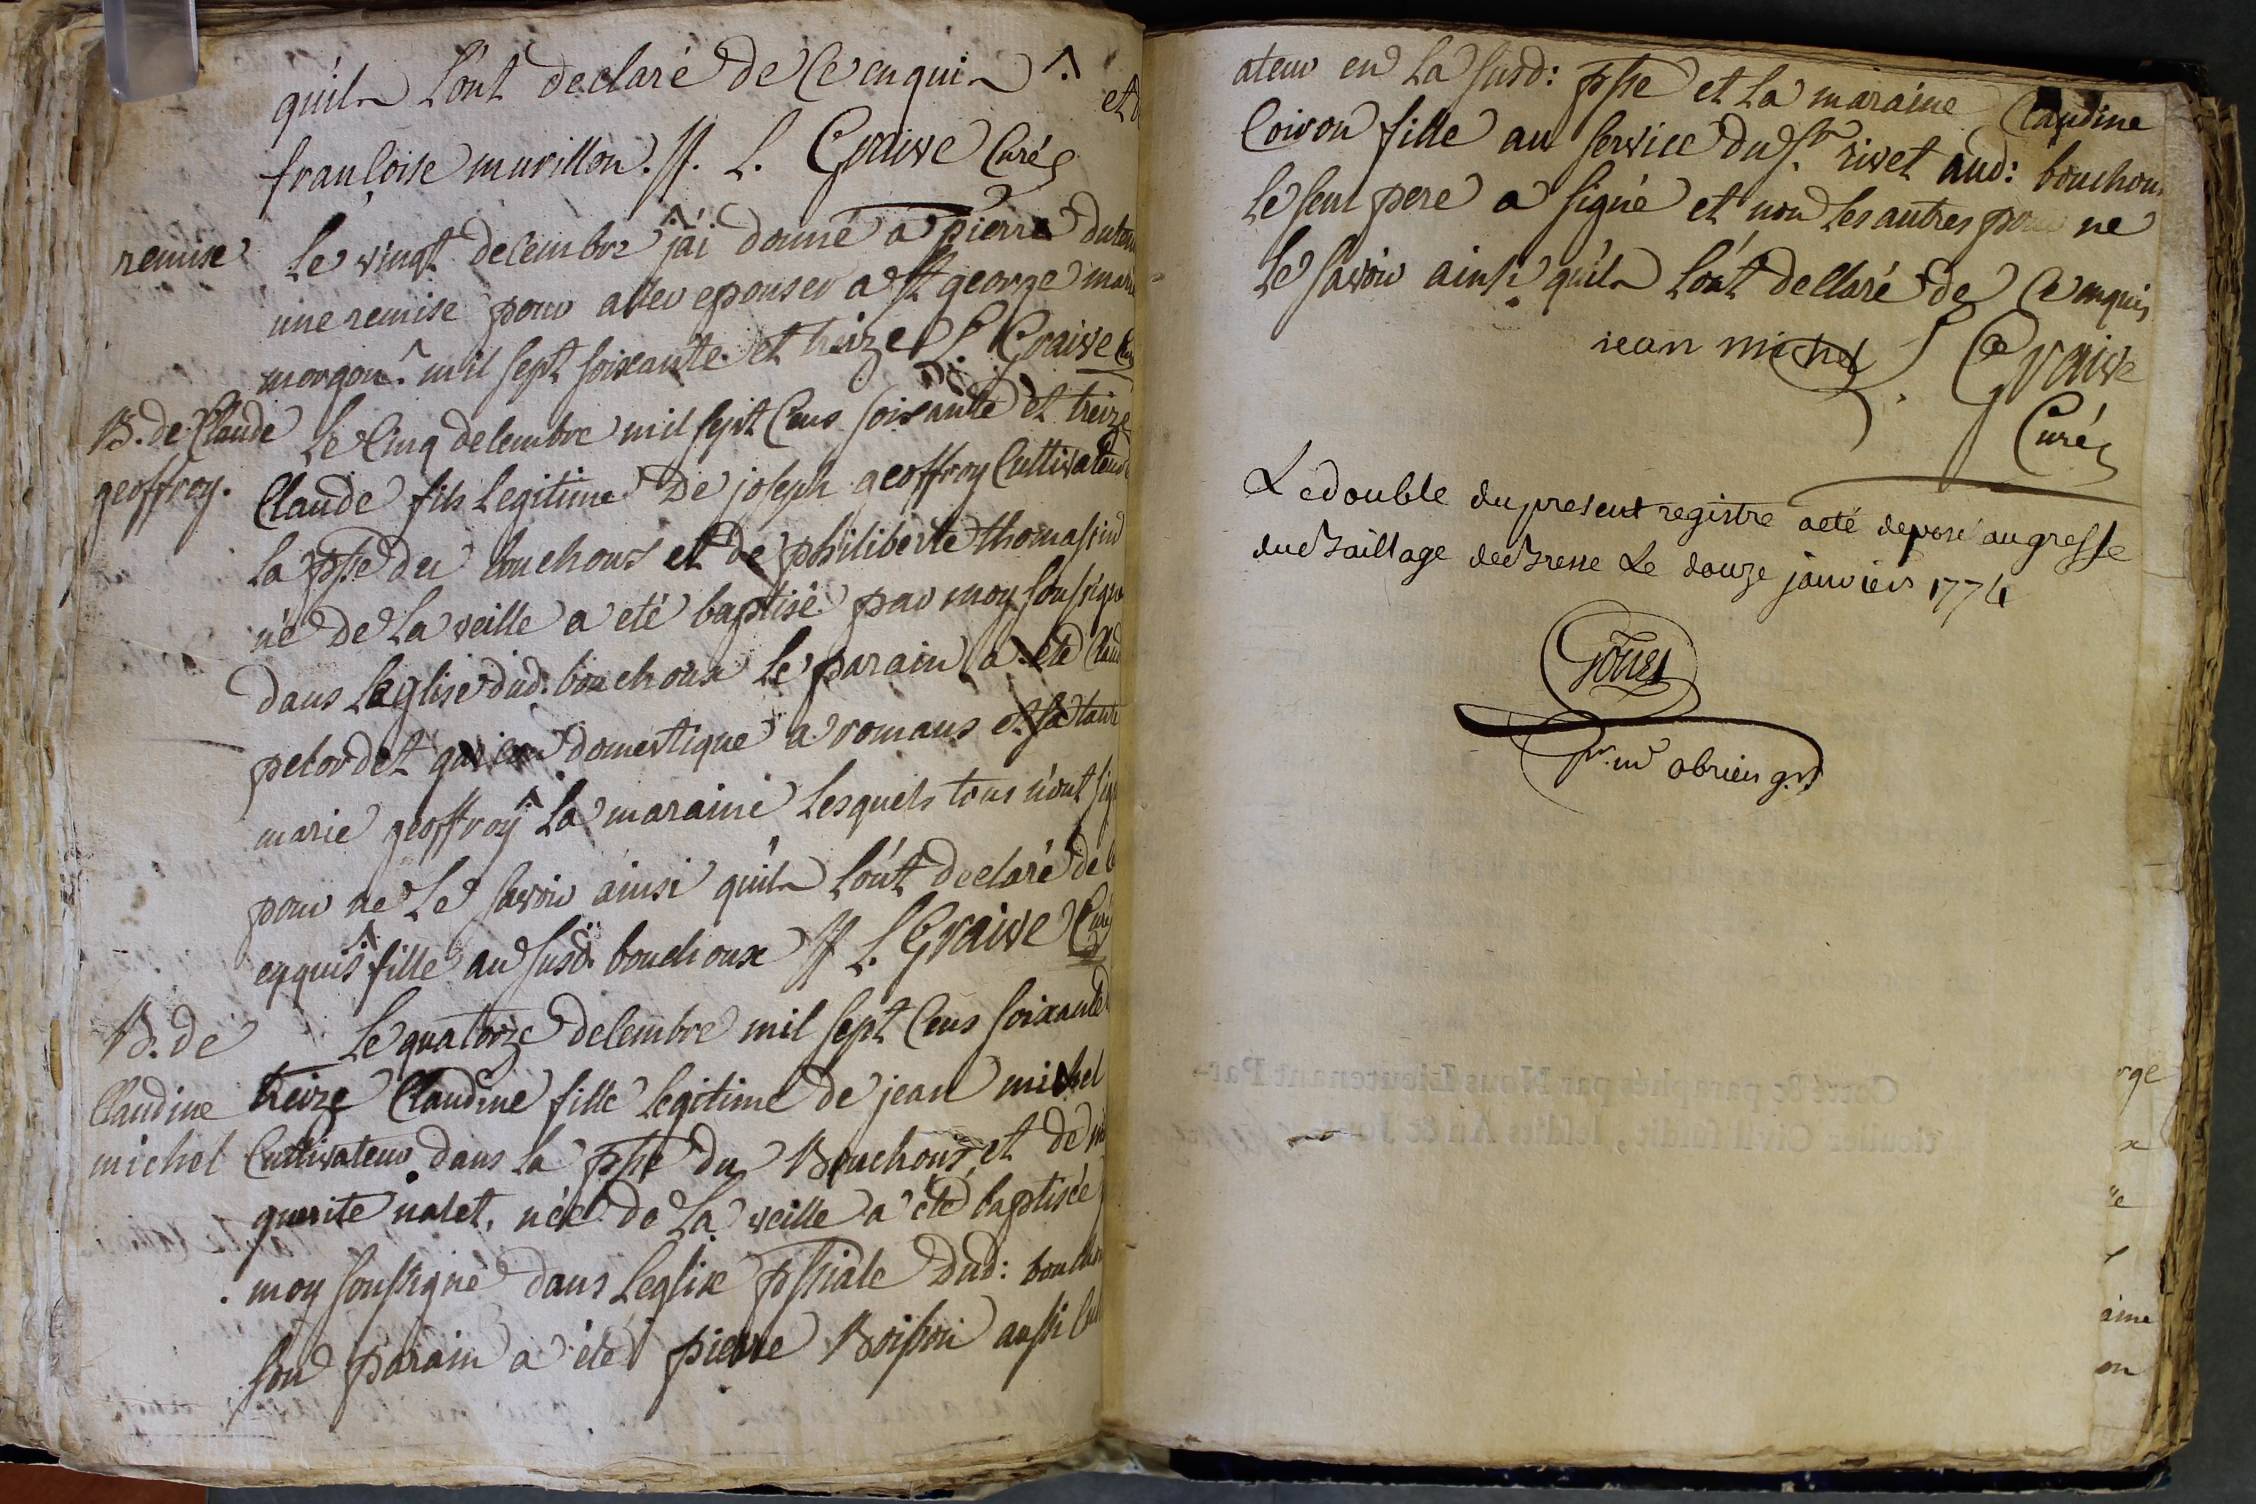 qu'ils l'ont declaré de ce enquis ^.
et
françoise murillon. //. L. Graive Curé
remise
Le vingt decembre j'ai donné a pierre
une remise pour aller epouser a st george marie
morgon. mil sept soixante et treize L. Graive
B. de Claude
geoffroy.
Le Cinq decembre mil sept Cens soixante et treize
Claude fils legitime De joseph geoffroy Cultivateur
la psse du bouchoux et de philiberte thomassin
né de la veille a eté baptisé par moy soussigné
dans l'eglise dud. bouchoux le parain a eté
petordet domestique a romans et sa tante
marie geoffroy ^ la maraine lesquels tous n'ont
pour ne le savoir ainsi qu'ils l'ont declaré de
enquis ^ fille au susd. bouchoux // L. Graive Curé
B. de
Claudine
michel
Le quatorze decembre mil sept Cens soixante
treize Claudine fille legitime de jean michel
Cultivateur dans la psse du Bouchoux, et de
guerite nalet, née de la veille a été baptisée
moy soussigné dans l'eglise pssiale dud:
son parain a été pierre Boisson aussi
ateur en la susd: psse et la maraine Claudine
Coiron fille au service du Sr. rivet aud: bouchoux
le seul pere a signé et non les autres pour ne
le savoir ainsi qu'ils l'ont declaré de ce enquis
jean michel L. Graive
Curé
Le double du present registre a eté deposé au greffe
du Baillage de Bresse Le douze janvier 1774
obrien
Cotté & paraphés par Nous Lieutenant Par-
ticulier Civil sussigné, lesdits An & Jour
rge
x
aine
on